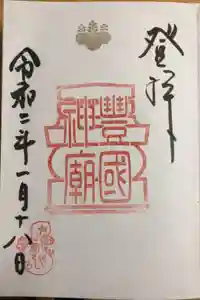 登拝
豐國
神廟
令和二年一月十八日